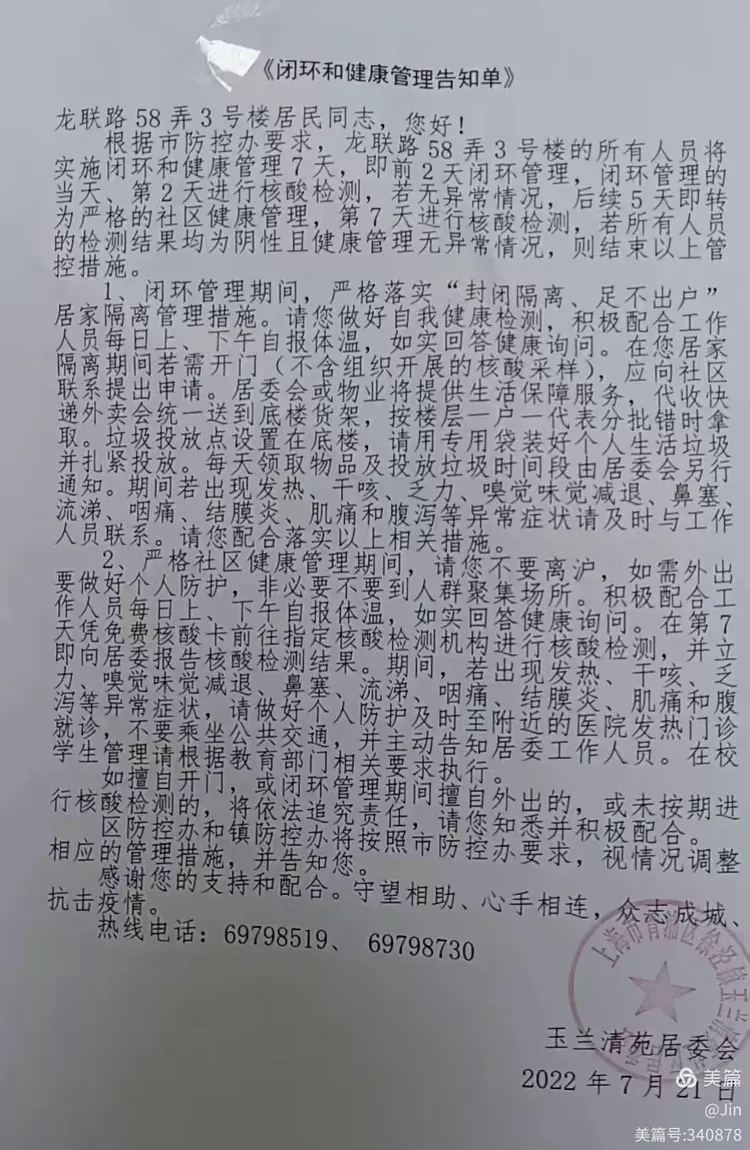 《闭环和健康管理告知单》
龙联路 58 弄 3 号楼居民同志，您好！
根据市防控办要求，龙联路 58 弄 3 号楼的所有人员将
实施闭环和健康管理 7 天，即前 2 天闭环管理，闭环管理的
当天、第 2 天进行核酸检测，若无异常情况，后续 5 天即转
为严格的社区健康管理，第 7 天进行核酸检测，若所有人员
的检测结果均为阴性且健康管理无异常情况，则结束以上管
控措施。
1、闭环管理期间，严格落实“封闭隔离、足不出户”
居家隔离管理措施。请您做好自我健康检测，积极配合工作
人员每日上、下午自报体温，如实回答健康询问。在您居家
隔离期间若需开门（不含组织开展的核酸采样），应向社区
联系提出申请。居委会或物业将提供生活保障服务，代收快
递外卖会统一送到底楼货架，按楼层一户一代表分批错时拿
取。垃圾投放点设置在底楼，请用专用袋装好个人生活垃圾
并扎紧投放。每天领取物品及投放垃圾时间段由居委会另行
通知。期间若出现发热、干咳、乏力、嗅觉味觉减退、鼻塞、
流涕、咽痛、结膜炎、肌痛和腹泻等异常症状请及时与工作
人员联系。请您配合落实以上相关措施。
2、严格社区健康管理期间，请您不要离沪，如需外出
要做好个人防护，非必要不要到人群聚集场所。积极配合工
作人员每日上、下午自报体温，如实回答健康询问。在第 7
天凭免费核酸卡前往指定核酸检测机构进行核酸检测，并立
即向居委报告核酸检测结果。期间，若出现发热、干咳、乏
力、嗅觉味觉减退、鼻塞、流涕、咽痛、结膜炎、肌痛和腹
泻等异常症状，请做好个人防护及时至附近的医院发热门诊
就诊，不要乘坐公共交通，并主动告知居委工作人员。在校
学生管理请根据教育部门相关要求执行。
如擅自开门，或闭环管理期间擅自外出的，或未按期进
行核酸检测的，将依法追究责任，请您知悉并积极配合。
区防控办和镇防控办将按照市防控办要求，视情况调整
相应的管理措施，并告知您。
感谢您的支持和配合。守望相助、心手相连，众志成城、
抗击疫情。
热线电话：69798519、 69798730
上海市青浦区徐泾镇玉兰清
玉兰清苑居委会
2022 年 7 月 21 日
美篇
@Jin
美篇号:340878